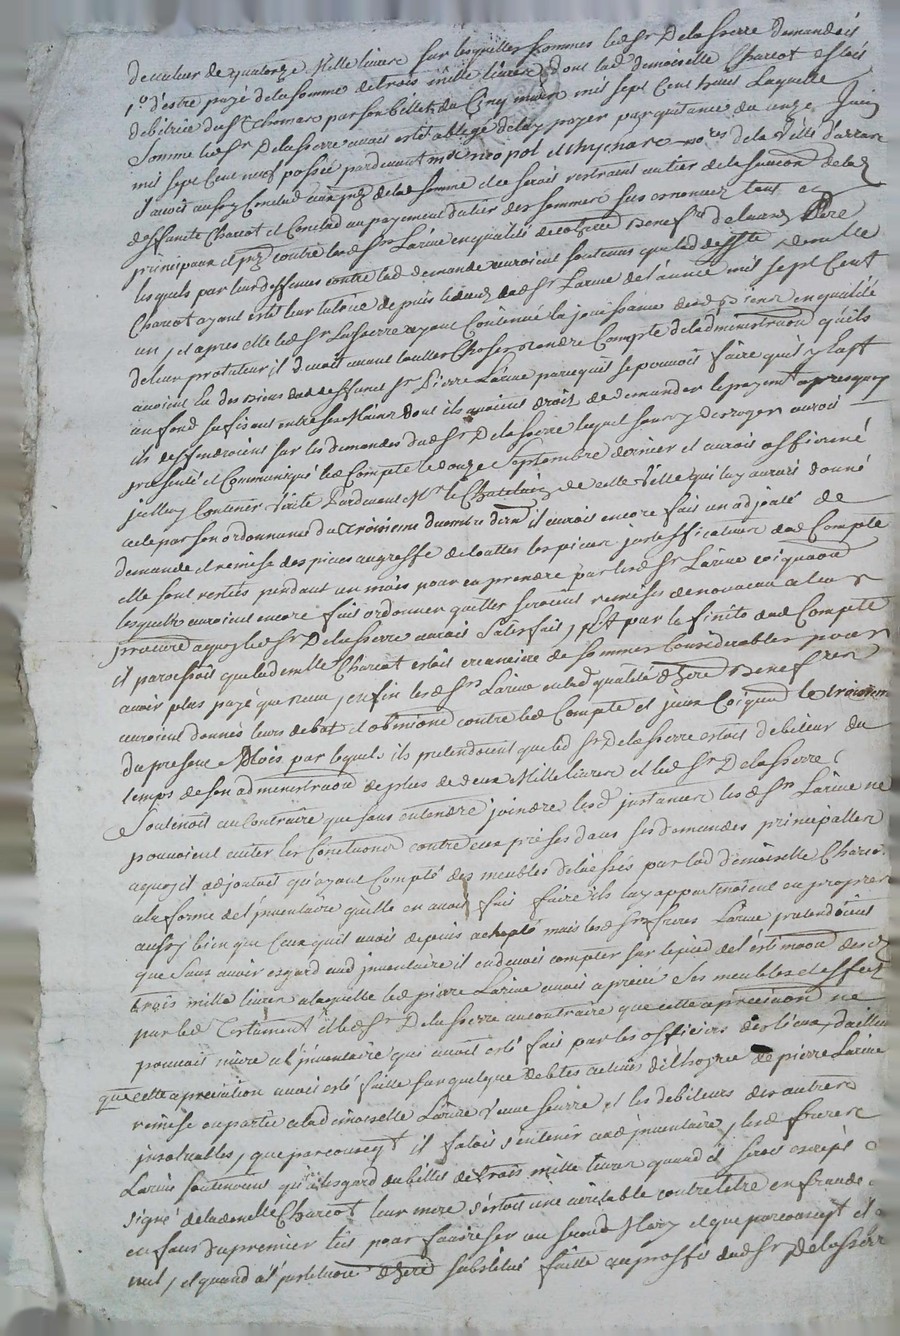 de valeur de quatorze Mille livres sur lesquelles sommes led Sr Delaserre demandoit
1o d'estre payé dela somme de trois mille livres dont lad demoiselle Charcot estoit
debitrice du Sr Thomas par son billet du Cinq mars mil sept Cent huit laquelle
somme led Sr Delaserre avoit esté oblegé deluy payer par quitance du onze Juin
mil sept Cent neuf passée pardevant not res dela ville
il avoit aussy Conclud aux jnz de lad somme et se seroit restraint au tier dela de lad
deffunte Charcot et Conclud au payement du tier des sommes sus enoncez tant en
principaux et jnz contre lesd Srs Larüe en qualité de leurd Pere
lesquels par leur deffences contre lad demande auroient soutenus que lad deffte demelle
Charcot ayant esté leur tutrice depuis le decez dud Sr Larüe de l'année mil sept Cent
un, et apres elle led Sr Lasserre ayant Continué la jouissance desd biens en qualité
de leur protuteur, il devoit avant toutter Choses rendre Compte deladministraon qu'ils
avoient Eu des biens dud deffunct Sr Pierre Larüe parcequil se pouvoit faire quil y Eust
un fond sufisant entre ses Mains dont ils avoient droit de demander le payent apres quoy
ils deffendroient sur les demandes dud Sr Delaserre lequel sans y derroger auroit
presenté et Communiqué led Compte le douze Septembre dernier et auroit affirmé
jcelluy Contenir Verité Pardevant Mr le Chatelain de cette Ville qui luy auroit donné
acte par son ordonnance du troisieme il auroit encore fait un adjouté de
demande et remise des pieces au greffe de touttes les pieces justifficatives dud Compte
elle sont restées pendant un mois pour en prendre par lesd Srs Larüe
lesquels auroient encore fait ordonner quelles seroient remises denouveau a leur
procure aquoy led Sr Delaserre auroit satisfait, Et par le finito dud Compte
il paroissoit que lad demelle Charcot estoit creanciere de sommes Considerables pour
avoir plus payé que receu, enfin lesd Srs Larüe aud qualité
auroient donnés leurs debat et obmissions contre led Compte et le troisieme
du present Mois par lequel ils pretendoient que led Sr Delaserre estoit debiteur du
temps de son administraon de plus de deux Mille livres et led Sr Delaserre
Soutenoit au Contraire que sans entendre joindre lesd jnstances lesd Srs Larüe ne
pouvoient eviter les Conclusions contre eux prises dans ses demandes principalles
aquoy il adjoutoit qu'ayant Compté des meubles delaissés par lad demoiselle Charcot
ala forme de l'jnventaire qu'elle en avoit fait faire ils luy appartenoient en propres
aussy bien que Ceux quil avoit depuis achepté mais lesd Srs freres Larüe pretendoient
que sans avoir esgard aud jnventaire il en devoit compter sur le pied de l'estimaon desd
trois mille livres a laquelle led pierre Larüe avoit aprecié ses meubles et effets
par led Testament et led Sr Delaserre au contraire que cette apreciaon ne
pouvoit nuire a l'jnventaire qui avoit esté fait par les officiers des lieux, d'ailleurs
que cette apreciation avoit esté faitte sur quelque debtes actives de l'hoyrie de pierre Larüe
remise en partie a lad demoiselle Larüe et les debiteurs des autres
jnsolvables, que par conseqt il faloit s'entenir aud jnventaire, lesd freres
Larüe soutenoient qu'a l'esgard du billet de trois mille livres quand il seroit
signé de lademelle Charcot leur mere s'estoit une veritable contrelettre en fraude
enfans du premier lits pour favoriser un second Mary et que par conseqt il
nul, et quand a l'jnstitution substitué faitte au proffit dud Sr Delaserre